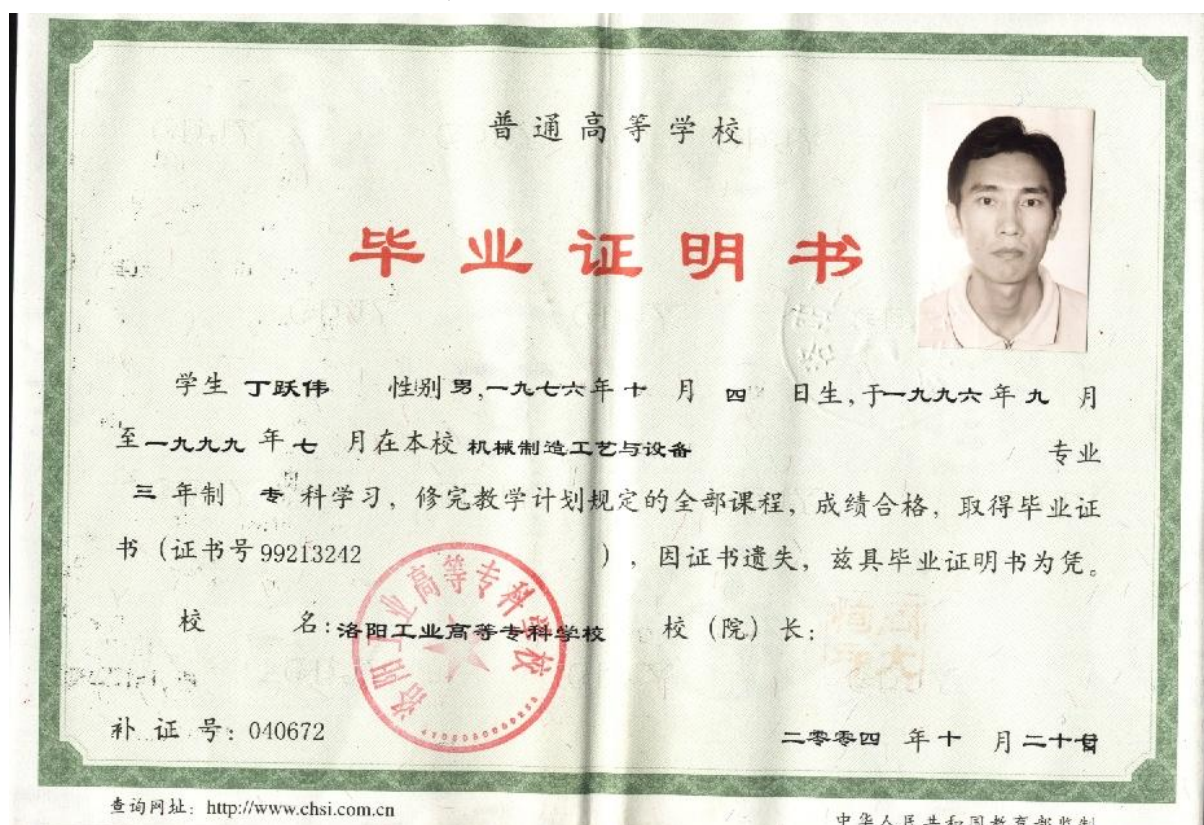 普通高等学校
毕业证明书
学生 丁跃伟 性别 男,一九七六年十月四日生,于一九九六年九月
至一九九九年七月在本校 机械制造工艺与设备 专业
三年制 专科学习,修完教学计划规定的全部课程,成绩合格,取得毕业证
书(证书号99213242),因证书遗失,兹具毕业证明书为凭。
校 名:洛阳工业高等专科学校 校(院)长:
洛阳工业高等专科学校
补 证 号:040672 二零零四年十月二十日
查询网址:http://www.chsi.com.cn
中华人民共和国教育部监制